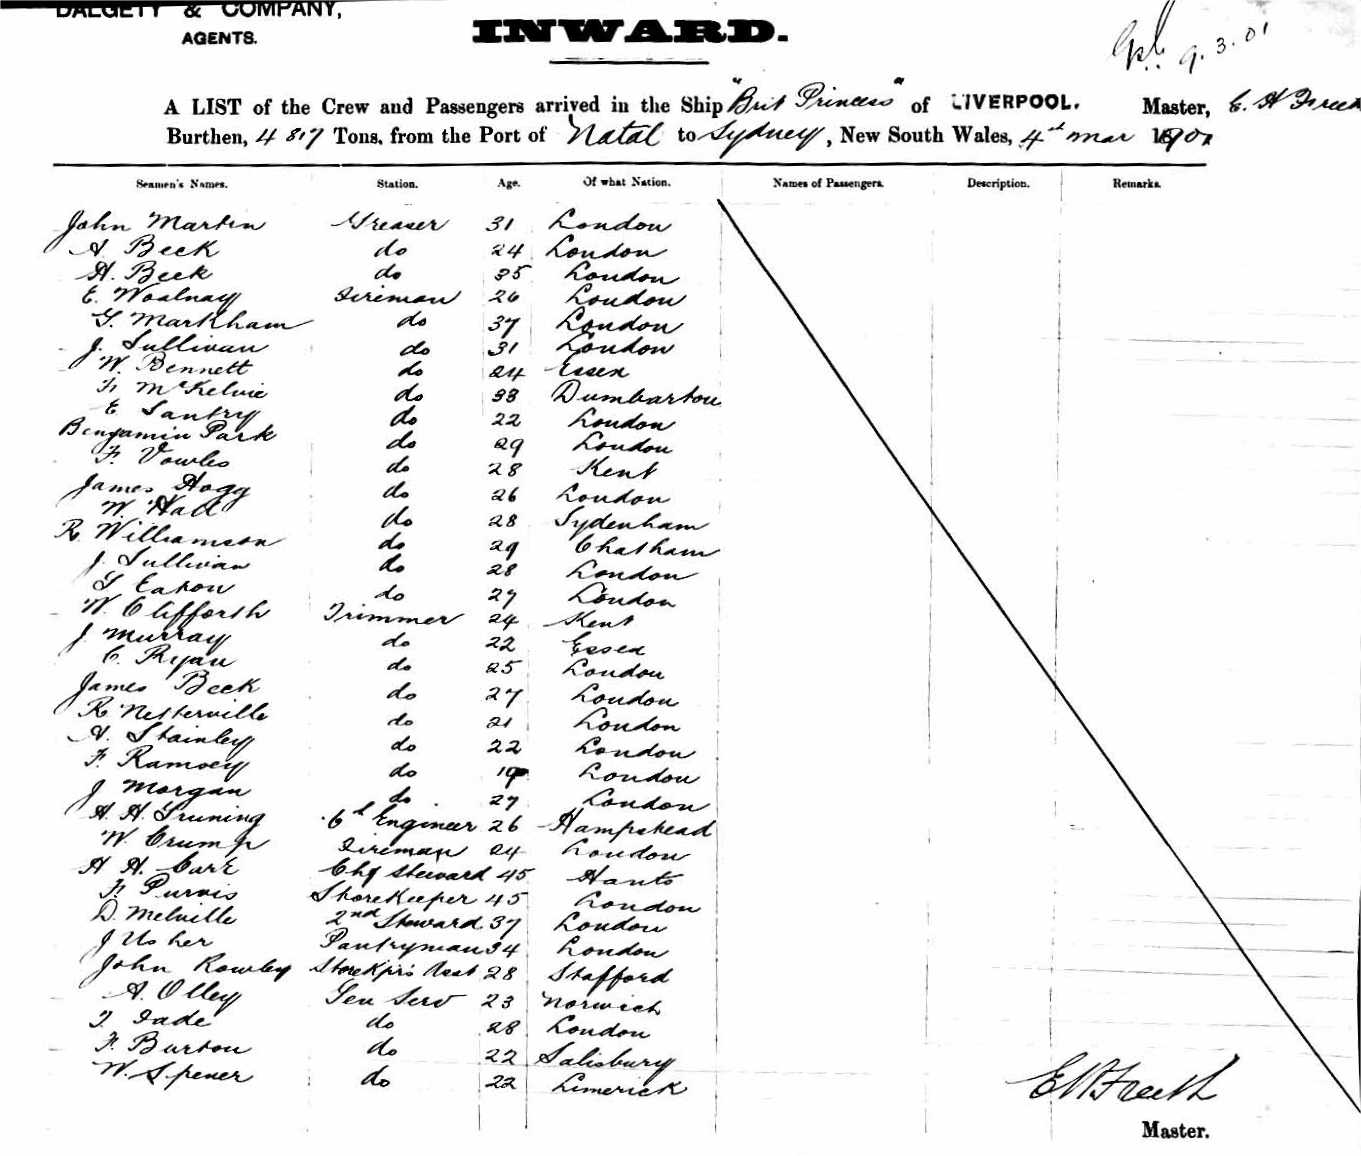 DALGETY & COMPANY,
AGENTS.
INWARD.
9.3.01
A LIST of the Crew and Passengers arrived in the Ship "Brit Princess" of LIVERPOOL. Master, E. H Freeth
Burthen, 4817 Tons, from the Port of Natal to Sydney, New South Wales, 4th Mar 1901
Seamen's Names. Station. Age. Of what Nation. Names of Passengers. Description. Remarks.
John Martin Greaser 31 London
A Beck do 24 London
H. Beek do 35 London
E. Woolnay Fireman 26 London
G. Markham do 37 London
J. Sullivan do 31 London
W. Bennett do 24 Essex
F. McKelvie do 33 Dumbarton
E Santry do 22 London
Benjamin Park do 29 London
F. Vowles do 28 Kent
James Hogg do 26 London
W. Hall do 28 Sydenham
R. Williamson do 29 Chatham
J. Sullivan do 28 London
Eaton do 27 London
W. Clifforth Trimmer 24 Kent
J. Murray do 22 Essex
C. Ryan do 25 London
James Beck do 27 London
R. Netterville do 21 London
A. Stainley do 22 London
F. Ramsey do 19 London
J Morgan do 27 London
A. H. Gruning 6th Engineer 26 Hampstead
W. Crump Fireman 24 London
H H. Carr Chf Steward 45 Hants
F. Purvis Storekeeper 45 London
D. Melville 2nd Steward 37 London
J Usher Pantryman 34 London
John Rowley Storekprs Asst 28 Stafford
A. Olley Gen Serv 23 Norwich
Jade do 28 London
F. Burton do 22 Salisbury
W. Spener do 22 Limerick
E H Freeth
Master.